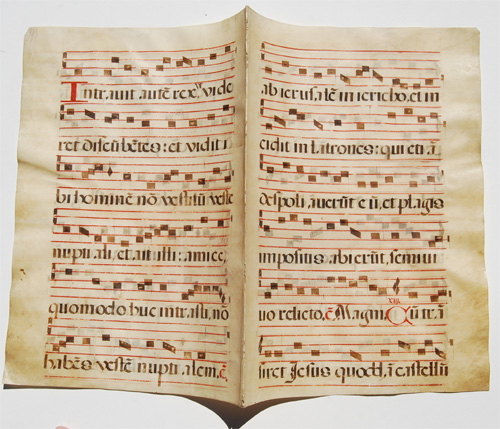 Intravit autē rex, vt vide
ret discūbētes: et vidit i
bi hominē nō vestitū veste
nuptiali, et ait illi: amice,
quomodo huc intrasti, nō
habēs vestē nuptialem, ē
ab ierusalē in iericho, et in
cidit in latrones: qui eti ā
despoliauerūt eū, et plagis
impositis abierūt, semiui
uo relicto, ē. Magni. Cū trā
siret Jesus castellū